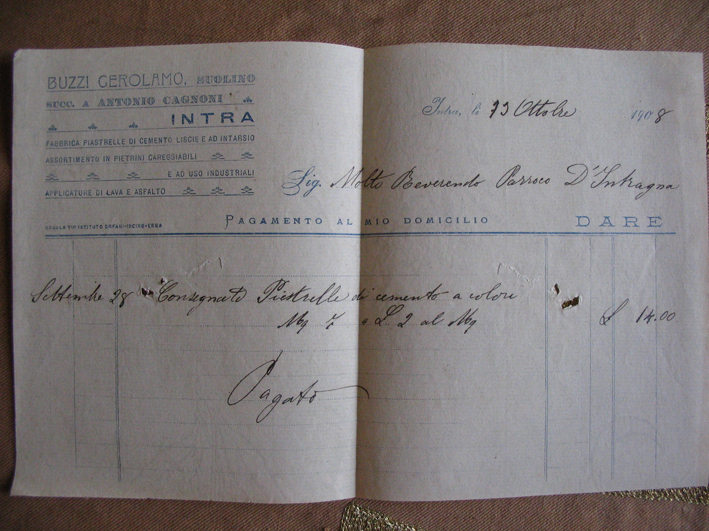 BUZZI GEROLAMO, MUOLINO
SUCC. A ANTONIO CAGNONI
INTRA
FABBRICA PIASTRELLE DI CEMENTO LISCIE E AD INTARSIO
ASSORTIMENTO IN PIETRINI CAREGGIABILI
E AD USO INDUSTRIALI
APPLICATURE DI LAVA E ASFALTO
Intra, li 13 Ottobre 1908
Sig. Molto Reverendo Parroco D'Intragna
PAGAMENTO AL MIO DOMICILIO DARE
Settembre 28 Consegnato Piastrelle di cemento a colori
Mq 7 a £ 2 al Mq £ 14.00
Pagato